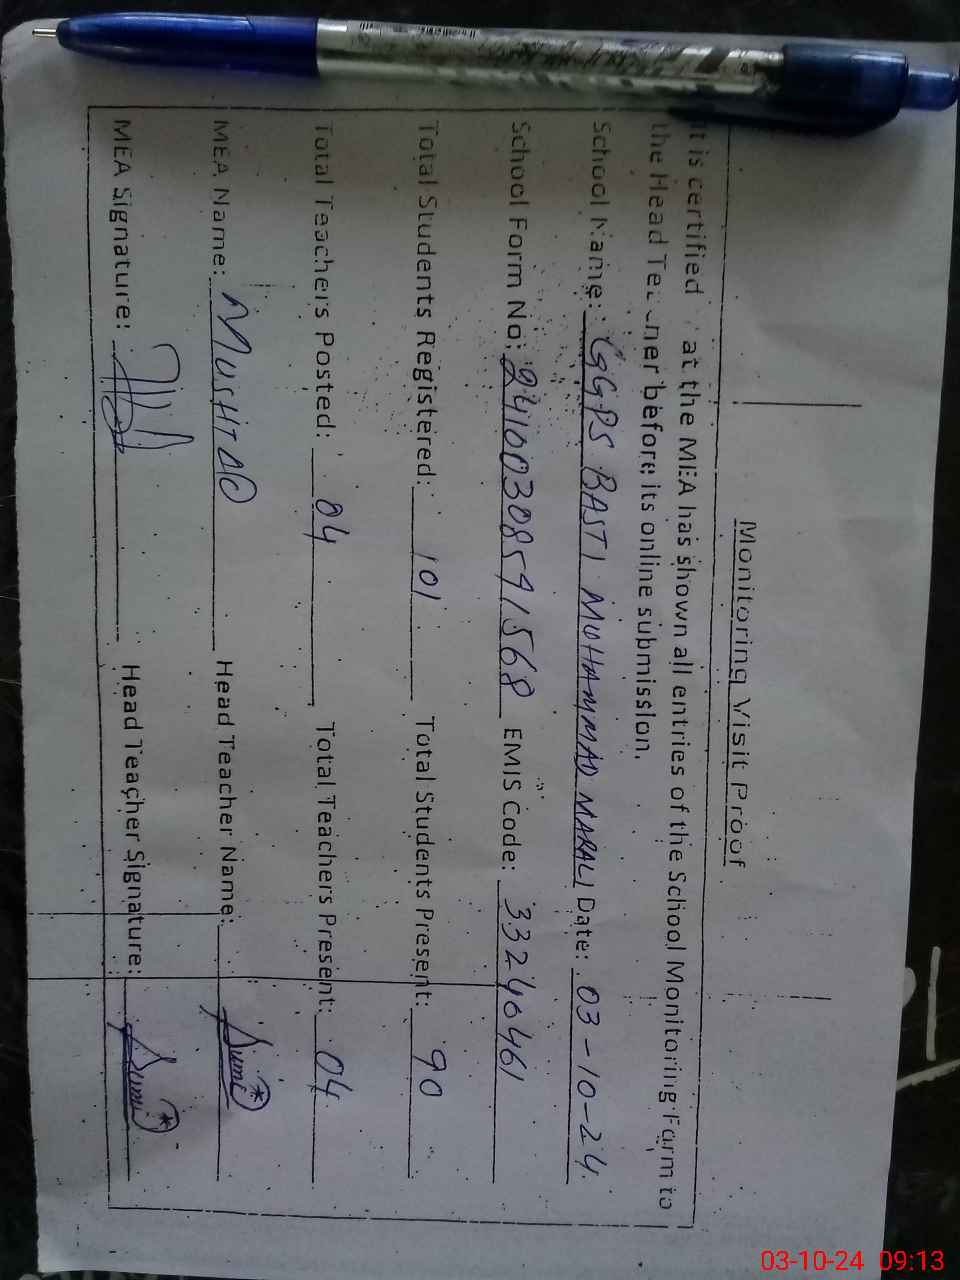 Monitoring Visit Proof
It is certified at the MEA has shown all entries of the School Monitoring Form to
the Head Teacher before its online submission.
School Name: GGPS BASTI MUHAMMAD MARALI Date: 03-10-24
School Form No: 24100308591568 EMIS Code: 33240461
Total Students Registered: 101 Total Students Present: 90
Total Teachers Posted: 04 Total Teachers Present: 04
MEA Name: MUSHTAQ Head Teacher Name:
MEA Signature: Head Teacher Signature:
03-10-24 09:13